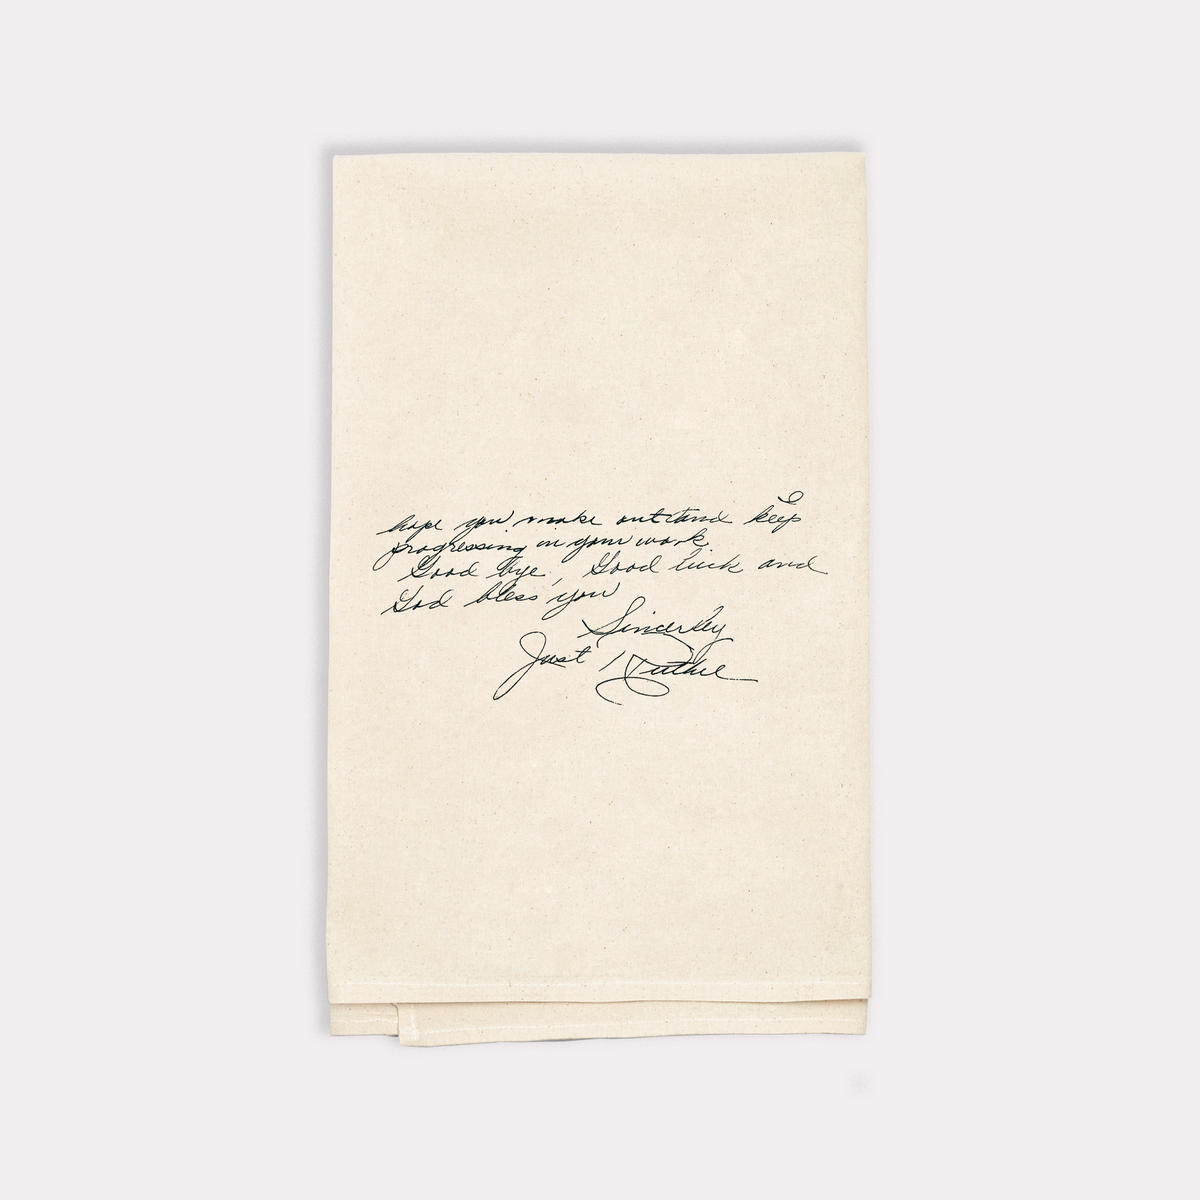 hope you make out and keep
progressing in your work
Good bye, Good luck and
God bless you
Sincerley
Just Ruthie